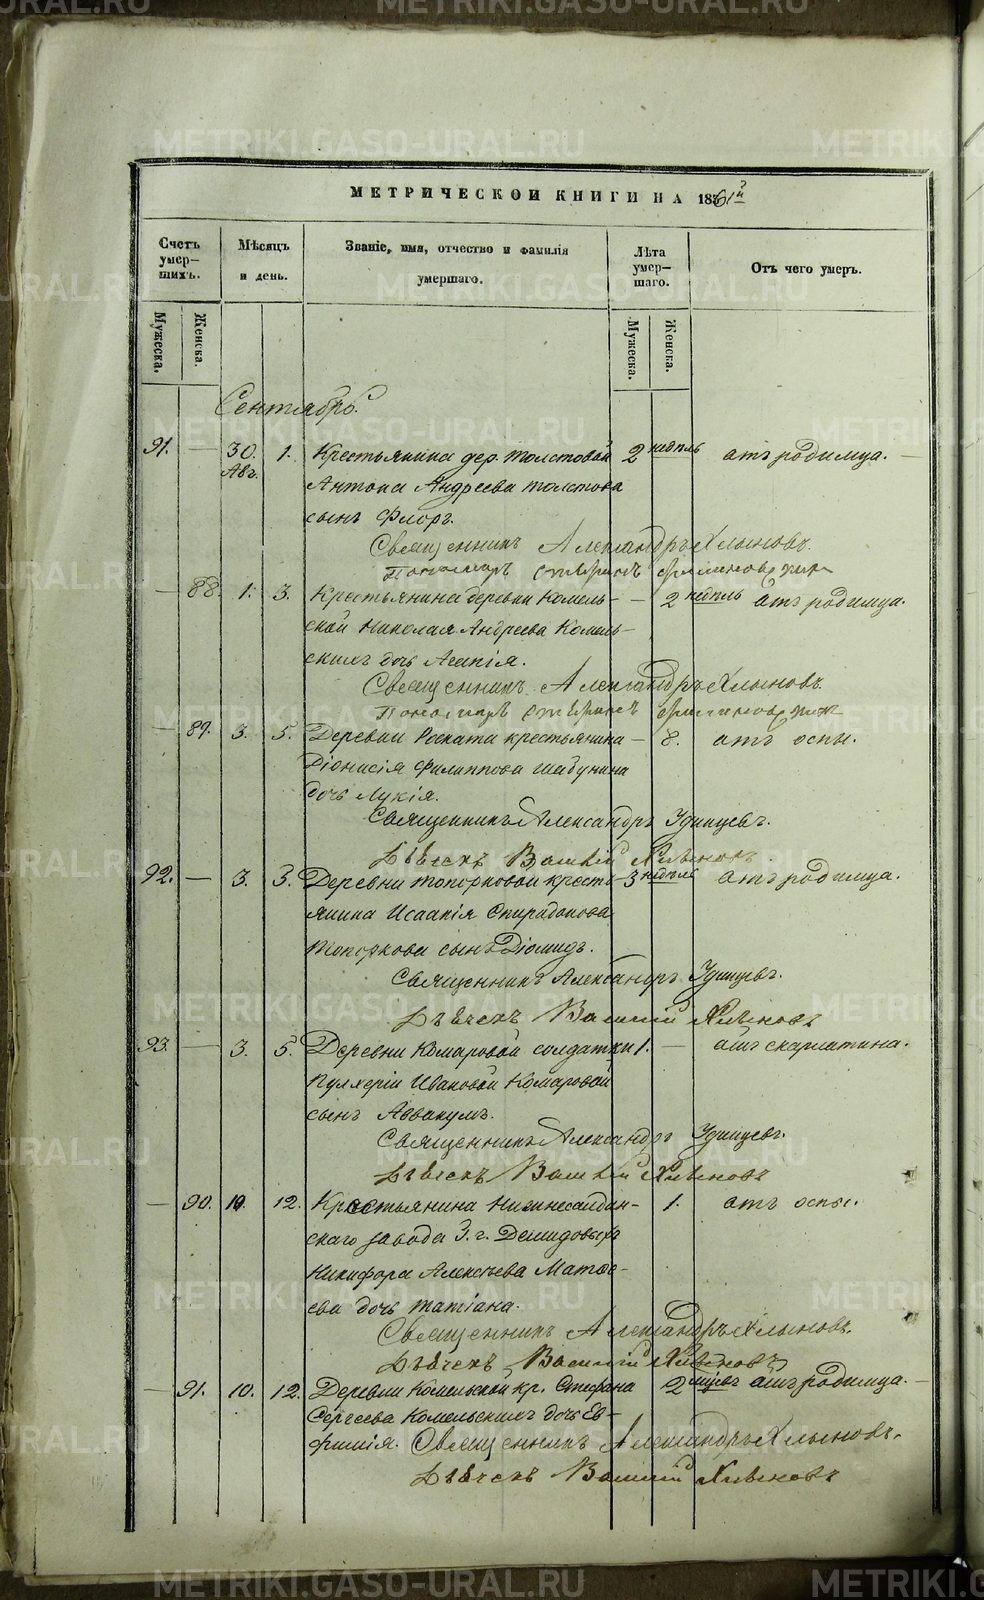 МЕТРИЧЕСКОЙ КНИГИ НА 1861й
Счетъ умер-
шихъ.
Мѣсяцъ
и день.
Званіе, имя, отчество и фамилія
умершаго.
Лѣта
умер-
шаго.
Отъ чего умеръ.
Мужеска.
Женска.
Мужеска.
Женска.
Сентябрь.
91. — 30. Авг. 1. Крестьянина дер. Толстовой 2 недѣль отъ родимца. —
Антона Андреева Толстова
сынъ Флоръ.
Священникъ Александръ Хлыновъ.
Пономарь
— 88. 1. 3. Крестьянина деревни Комель- — 2 недѣль отъ родимца.
ской Николая Андреева Комель-
скихъ дочь Агапія.
Священникъ Александръ Хлыновъ.
Пономарь
— 89. 3. 5. Деревни крестьянина — 8. отъ оспы.
Діонисія Филиппова Шабунина
дочь Лукія.
Священникъ Александръ Удинцевъ.
Дьячекъ Василій Хлыновъ.
92. — 3. 3. Деревни Топорковой кресть- 3 недѣль отъ родимца.
янина Исаакія Спиридонова
Топоркова сынъ Діомидъ.
Священникъ Александръ Удинцевъ.
Дьячекъ Василій Хлыновъ
93. — 3. 5. Деревни Комаровой солдатки 1. — отъ скарлатина.
Пулхеріи Ивановой Комаровой
сынъ Аввакумъ.
Священникъ Александръ Удинцевъ.
Дьячекъ Василій Хлыновъ
— 90. 10. 12. Крестьянина Нижнесалдин- — 1. отъ оспы.
скаго завода З. г. Демидовыхъ
Никифора Алексѣева Матѳе-
ева дочь Татіана.
Священникъ Александръ Хлыновъ.
Дьячекъ Василій Хлыновъ
— 91. 10. 12. Деревни Комельской кр. Стефана 2 мѣсяц. отъ родимца. —
Сергеева Комельскихъ дочь Ев-
фимія. Священникъ Александръ Хлыновъ.
Дьячекъ Василій Хлыновъ
METRIKI.GASO-URAL.RU